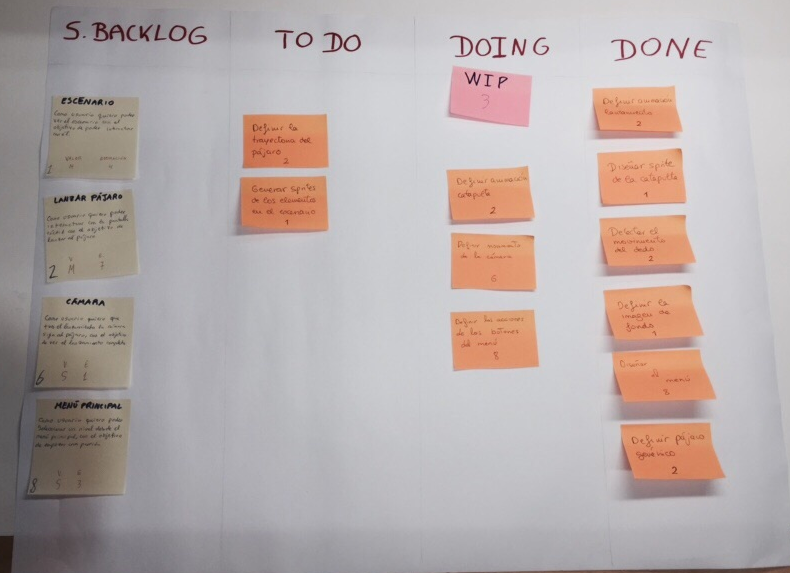 S. BACKLOG
TO DO
DOING
DONE
ESCENARIO
Como usuario quiero poder
ver el escenario con el
objetivo de poder interactuar
con él.
1
LANZAR PÁJARO
Como usuario quiero poder
interactuar con la pantalla
móvil con el objetivo de
lanzar el pájaro
2 M 7
CÁMARA
Como usuario quiero que
siga al pájaro, con el objetivo
de ver el lanzamiento completo
6 5 1
MENÚ PRINCIPAL
Como usuario quiero poder
seleccionar un nivel desde el
menú principal, con el objetivo
de
8 5 3
Definir la
trayectoria del
pájaro
2
Generar sprites
de los elementos
en el escenario
1
WIP
3
Definir animación
catapulta
2
Definir movimiento
de la cámara
6
Definir las acciones
de los botones
del menú
8
Definir animación
lanzamiento
2
Diseñar sprite
de la catapulta
1
Detectar el
movimiento
del dedo
2
Definir la
imagen de
fondo
1
Diseñar
el menú
8
Definir pájaro
genérico
2